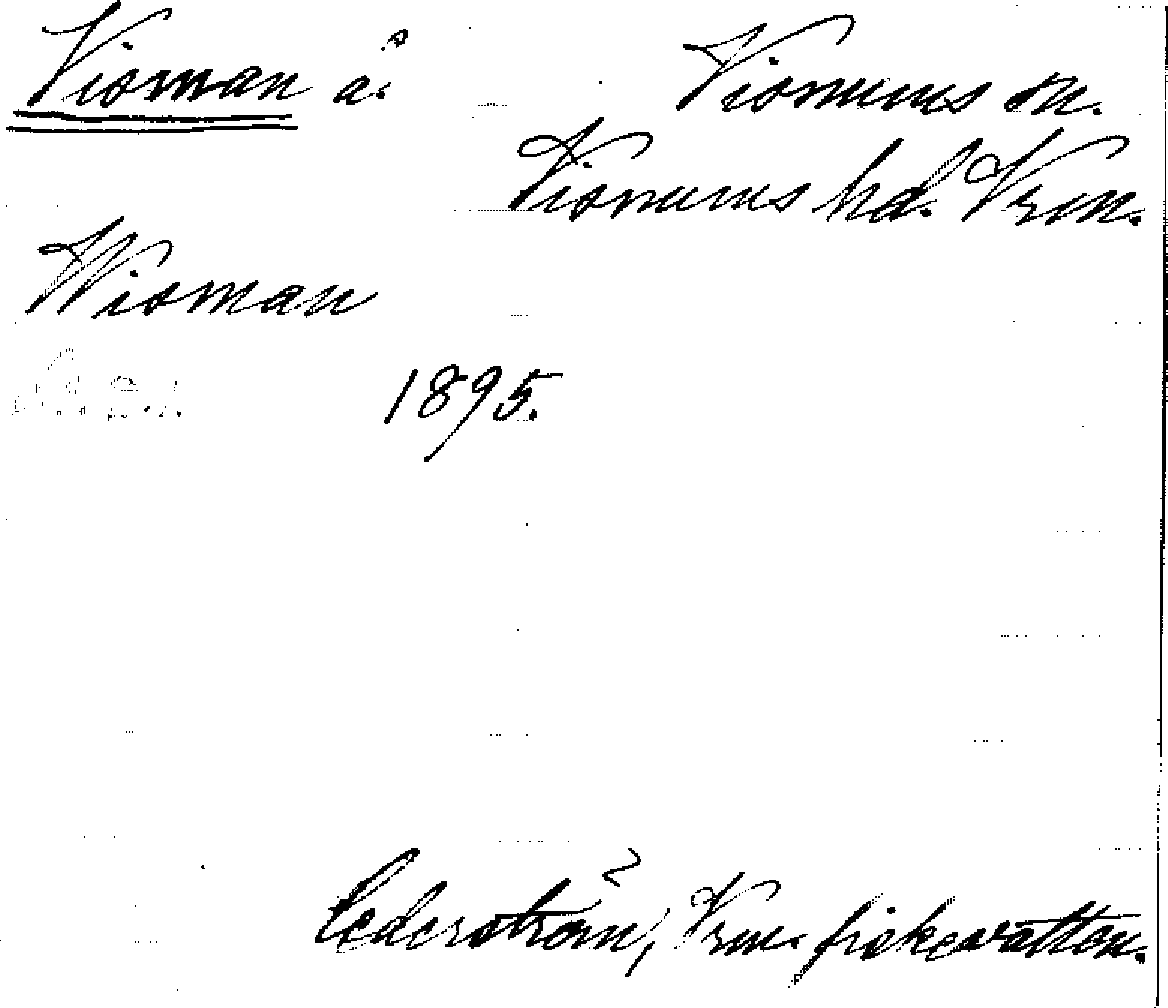 Visman å.
Visnums sn.
Visnums hd. Vrm.
Wisman
1895.
Cederström, Vrm. fiskevatten.